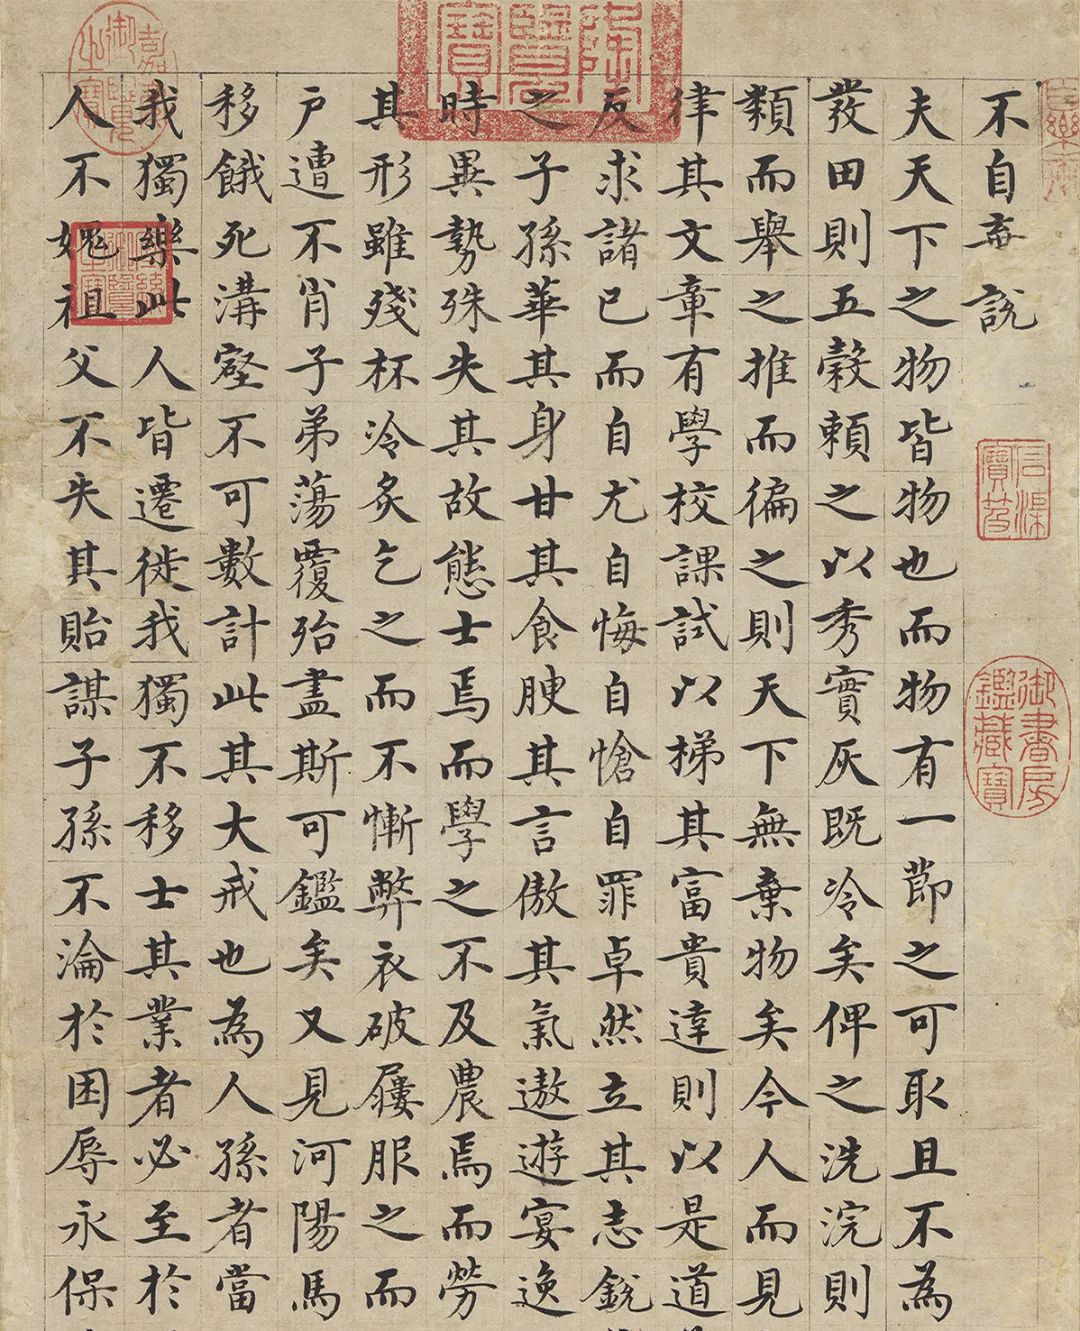 不自棄說
夫天下之物皆物也而物有一節之可取且不為
發田則五穀賴之以秀實灰既冷矣俾之洗浣則
類而舉之推而徧之則天下無棄物矣今人而見
律其文章有學校課試以梯其富貴達則以是道
反求諸已而自尤自悔自愴自罪卓然立其志銳
之子孫華其身甘其食腴其言傲其氣遨遊宴逸
時異勢殊失其故態士焉而學之不及農焉而勞
其形雖殘杯冷炙乞之而不慚弊衣破屨服之而
戶遭不肖子弟蕩覆殆盡斯可鑑矣又見河陽馬
移餓死溝壑不可數計此其大戒也為人孫者當
我獨樂此人皆遷徙我獨不移士其業者必至於
人不媿祖父不失其貽謀子孫不淪於困辱永保
隆
覽
寶
嘉
御覽
之寶
御書房
鑑藏寶